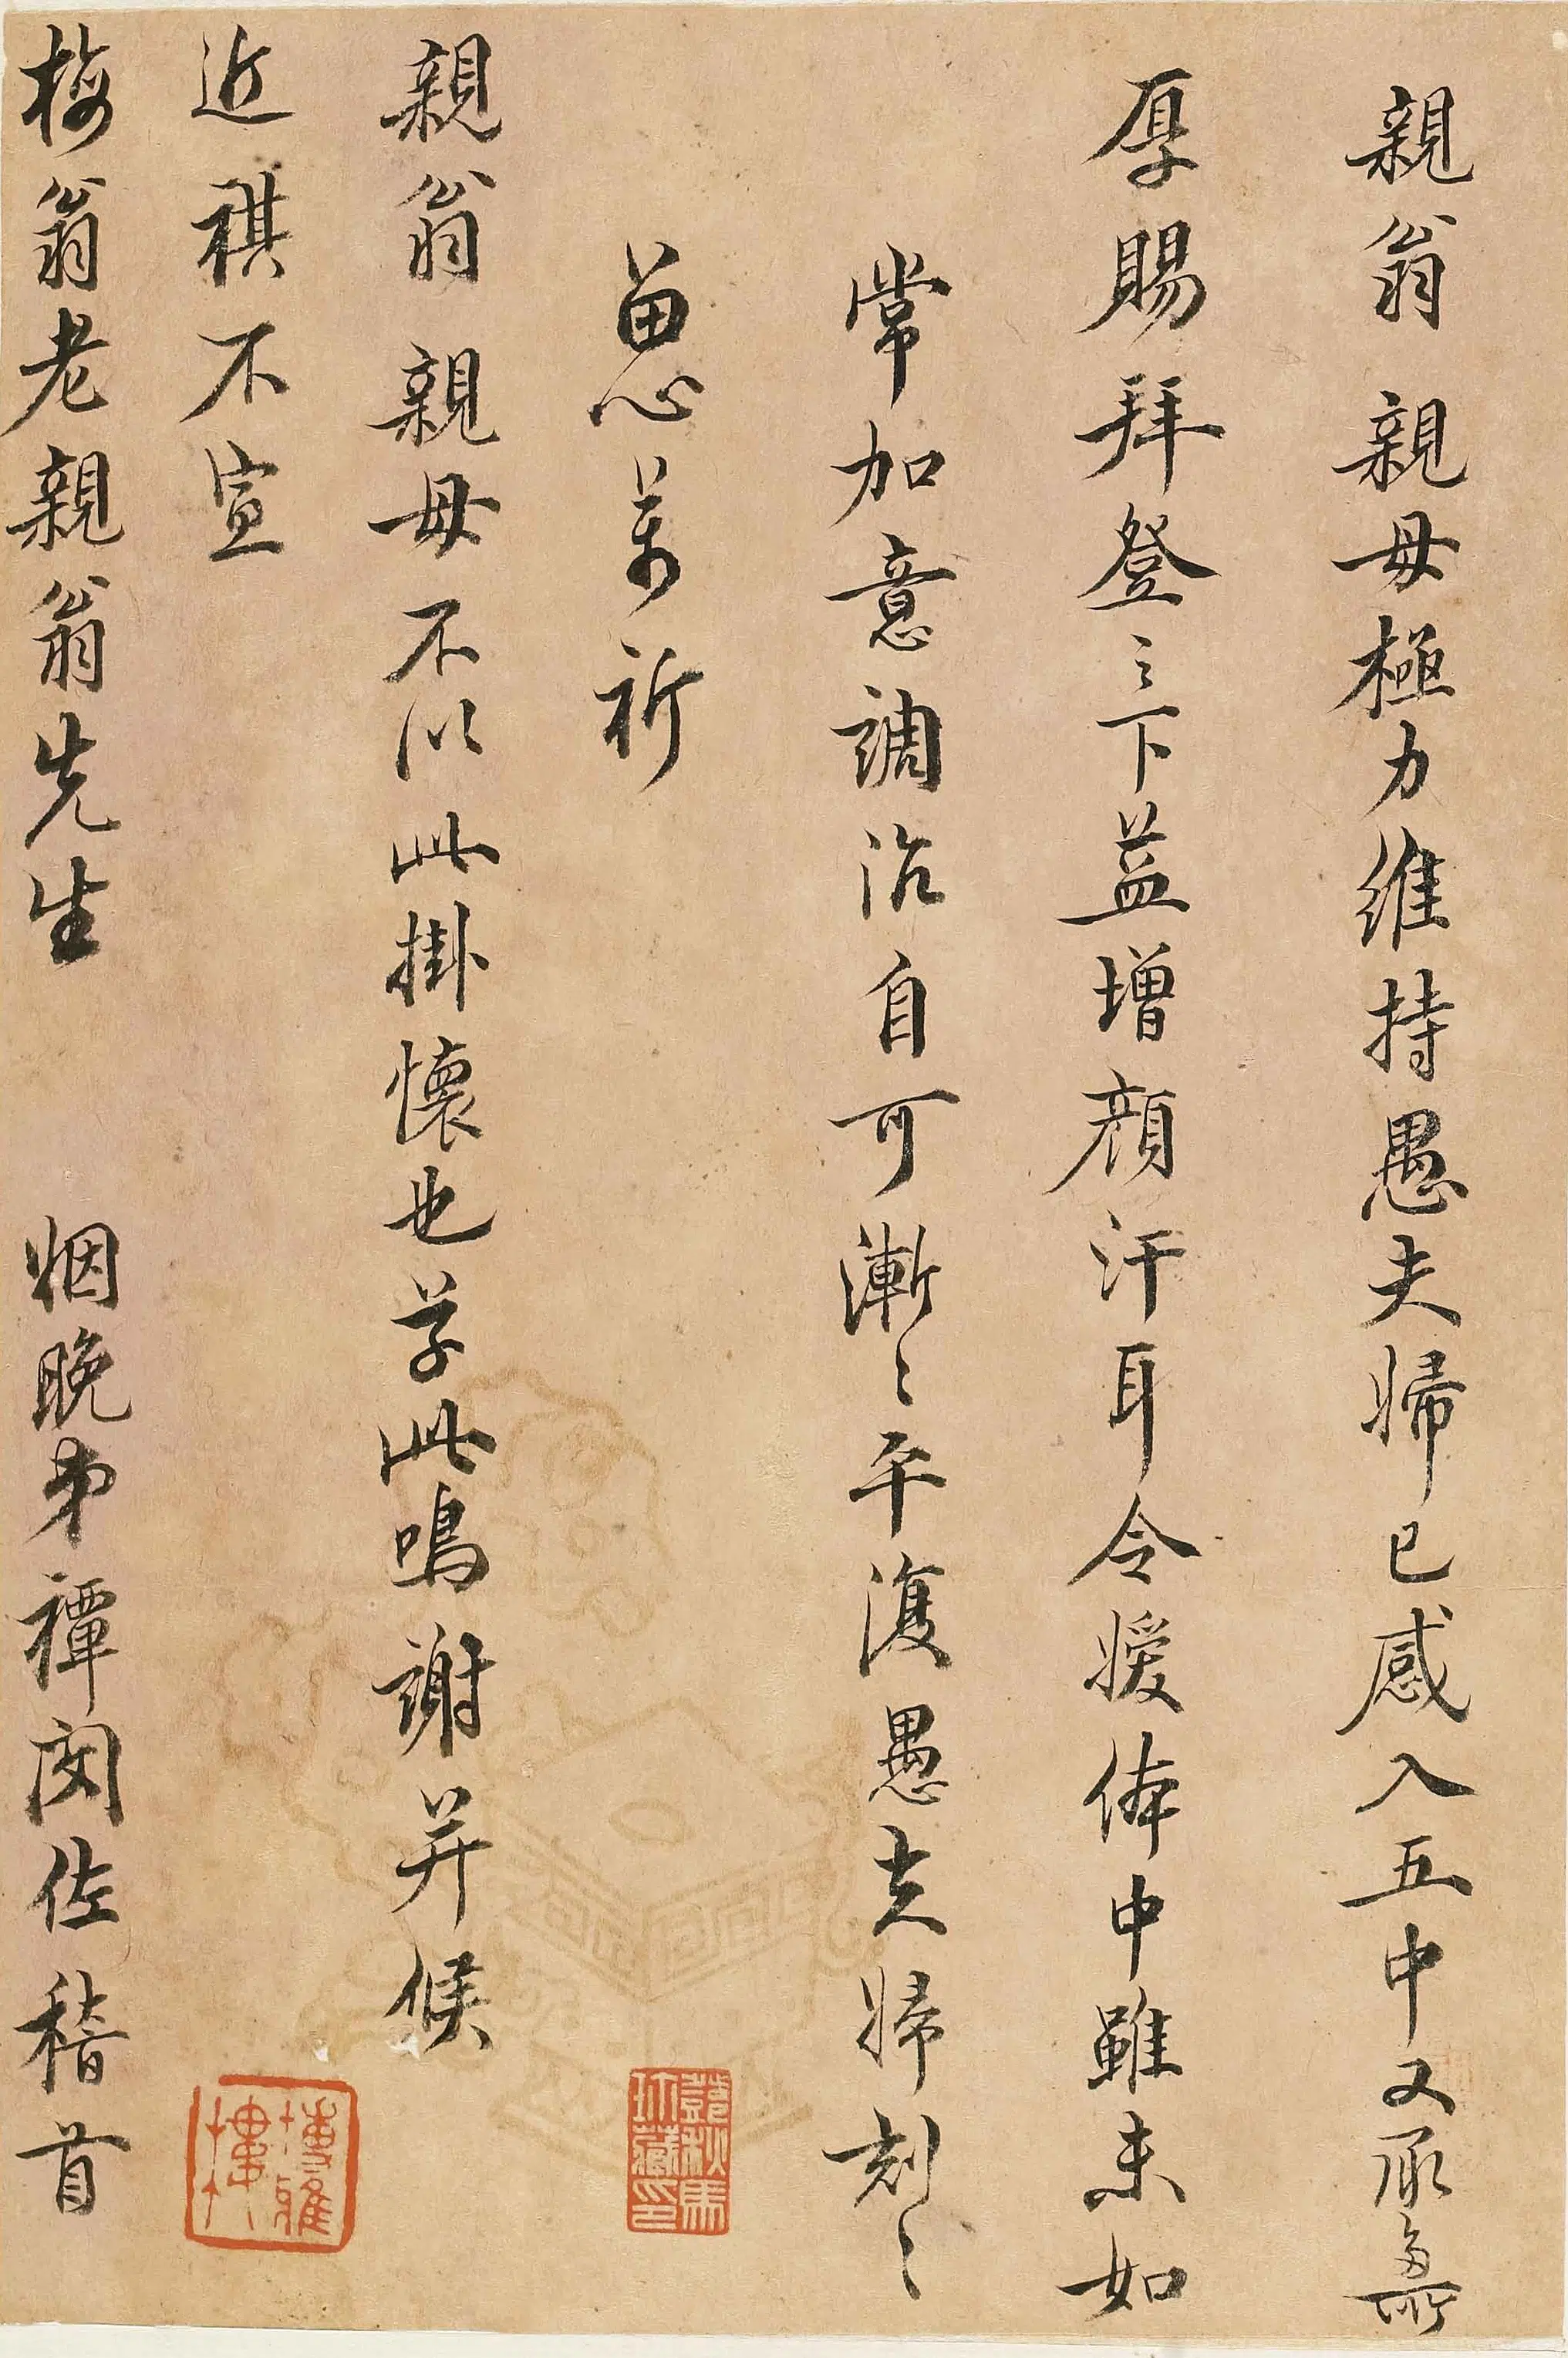 親翁 親母極力維持愚夫婦已感入五中又承
厚賜拜登之下益增顏汗耳令嬡体中雖未如
常加意調治自可漸〻平復愚夫婦刻〻
留心萬祈
親翁親母不以此掛懷也草此鳴謝并候
近祺不宣
梅翁老親翁先生 姻晚弟禫閔佐稽首
鄧秋馬珍藏印
博雅樓